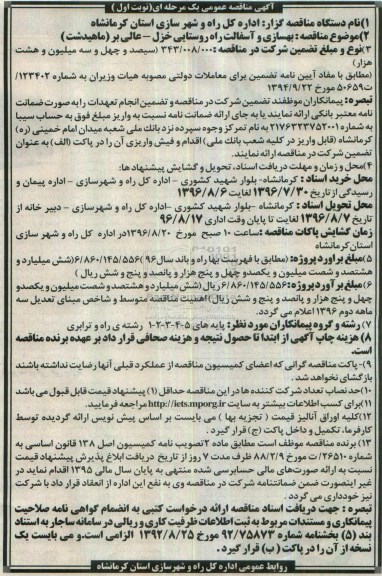 آگهی مناقصه عمومی یک مرحله ای(نوبت اول )
۱)نام دستگاه مناقصه گزار: اداره کل راه و شهر سازی استان کرمانشاه
۲)موضوع مناقصه: بهسازی و آسفالت راه روستایی خزل – عالی بر (ماهیدشت)
۳)نوع و مبلغ تضمین شرکت در مناقصه :۳۴۳/۰۰۸/۰۰۰ (سیصد و چهل و سه میلیون و هشت هزار)
(مطابق با مفاد آیین نامه تضمین برای معاملات دولتی مصوبه هیات وزیران به شماره ۱۲۳۴۰۲/ت۵۰۶۵۹ مورخ ۱۳۹۴/۹/۲۲
تبصره: پیمانکاران موظفند تضمین شرکت در مناقصه و تضمین انجام تعهدات را به صورت ضمانت نامه بانکی ارائه نمایند یا به جای ارائه ضمانت نامه نسبت به واریز مبلغ فوق به حساب سیبا به شماره ۲۱۷۶۳۲۳۷۵۲۰۰۱ به نام تمرکز وجوه سپرده نزد بانک ملی شعبه میدان امام خمینی (ره) کرمانشاه (قابل واریز در کلیه شعب بانک ملی) اقدام و فیش واریزی آن را در پاکت (الف) به عنوان تضمین شرکت در مناقصه ارائه نمایند.
۴)محل و زمان و مهلت دریافت اسناد، تحویل و گشایش پیشنهادها:
محل خرید اسناد : کرمانشاه- بلوار شهید کشوری – اداره کل راه و شهرسازی - اداره پیمان و رسیدگی از تاریخ ۱۳۹۶/۷/۳۰ لغایت ۱۳۹۶/۸/۶
محل تحویل اسناد : کرمانشاه -بلوار شهید کشوری –اداره کل راه و شهرسازی - دبیر خانه از تاریخ ۱۳۹۶/۸/۷ لغایت تا پایان وقت اداری ۹۶/۸/۱۷
زمان گشایش پاکات مناقصه :ساعت ۱۰ صبح مورخ ۱۳۹۶/۸/۲۰در اداره کل راه و شهر سازی استان کرمانشاه
۵)مبلغ برآورد پروژه: (مطابق با فهرست بها راه و باند سال ۹۶ )۶/۸۶۰/۱۴۵/۵۵۶(شش میلیارد و هشتصد و شصت میلیون و یکصدو چهل و پنج هزار و پانصد و پنج و شش ریال )
۶)مبلغ برآورد پروژه:۶/۸۶۰/۱۴۵/۵۵۶ ریال (شش میلیارد و هشتصد و شصت میلیون و یکصدو چهل و پنج هزار و پانصد و پنج و شش ریال) اهمیت مناقصه متوسط و شاخص مبنای تعدیل سه ماهه دوم ۱۳۹۶ اعلام می گردد.
۷) رشته و گروه پیمانکاران مورد نظر: پایه های ۵-۴-۳-۲-۱ رشته ی راه و ترابری
۸) هزینه چاپ آگهی از ابتدا تا حصول نتیجه و هزینه صحافی قرار داد بر عهده برنده مناقصه است.
۹)- پاکت مناقصه گرانی که اعضای کمیسیون مناقصه از عملکرد قبلی آنها رضایت نداشته باشند بازگشای نخواهد شد.
۱۰)حد نصاب تعداد شرکت کننده ها در این مناقصه حداقل (۱) پیشنهاد قیمت قابل قبول می باشد
۱۱)برای کسب اطلاعات بیشتر به سایت http://iets.mporg.ir مراجعه فرمایید.
۱۲)کلیه اوراق آنالیز قیمت ( تجزیه بها ) می بایست بر اساس پیش نویس ارائه گردیده توسط کارفرما، تکمیل و داخل پاکت (ج) قرار گیرد .
۱۳) برنده مناقصه موظف است مطابق ماده ۲تصویب نامه کمیسیون اصل ۱۳۸ قانون اساسی به شماره ۲۶۵۱۰/ت مورخ ۸۸/۲/۹ ظرف مدت ۷ روز از تاریخ دریافت ابلاغ پذیرش پیشنهاد قیمت نسبت به ارائه صورت‌های مالی حسابرسی شده منتهی به پایان سال مالی ۱۳۹۵ اقدام نماید در غیر اینصورت ضمن ضمانتنامه شرکت در مناقصه وی به نفع این اداره از انعقاد قرار داد با شرکت نیز خودداری می گردد .
تبصره : جهت دریافت اسناد مناقصه ارائه درخواست کتبی به انضمام گواهی نامه صلاحیت پیمانکاری و مستندات مربوط به ثبت اطلاعات ظرفیت کاری و ریالی در سامانه ساجار به استناد بند (۵) بخشنامه شماره ۹۲/۷۵۸۷۳ مورخ ۱۳۹۲/۸/۲۵ الزامی است.و می بایست یک نسخه از آن را در پاکت (ب) قرار گیرد .
روابط عمومی اداره کل راه و شهرسازی استان کرمانشاه